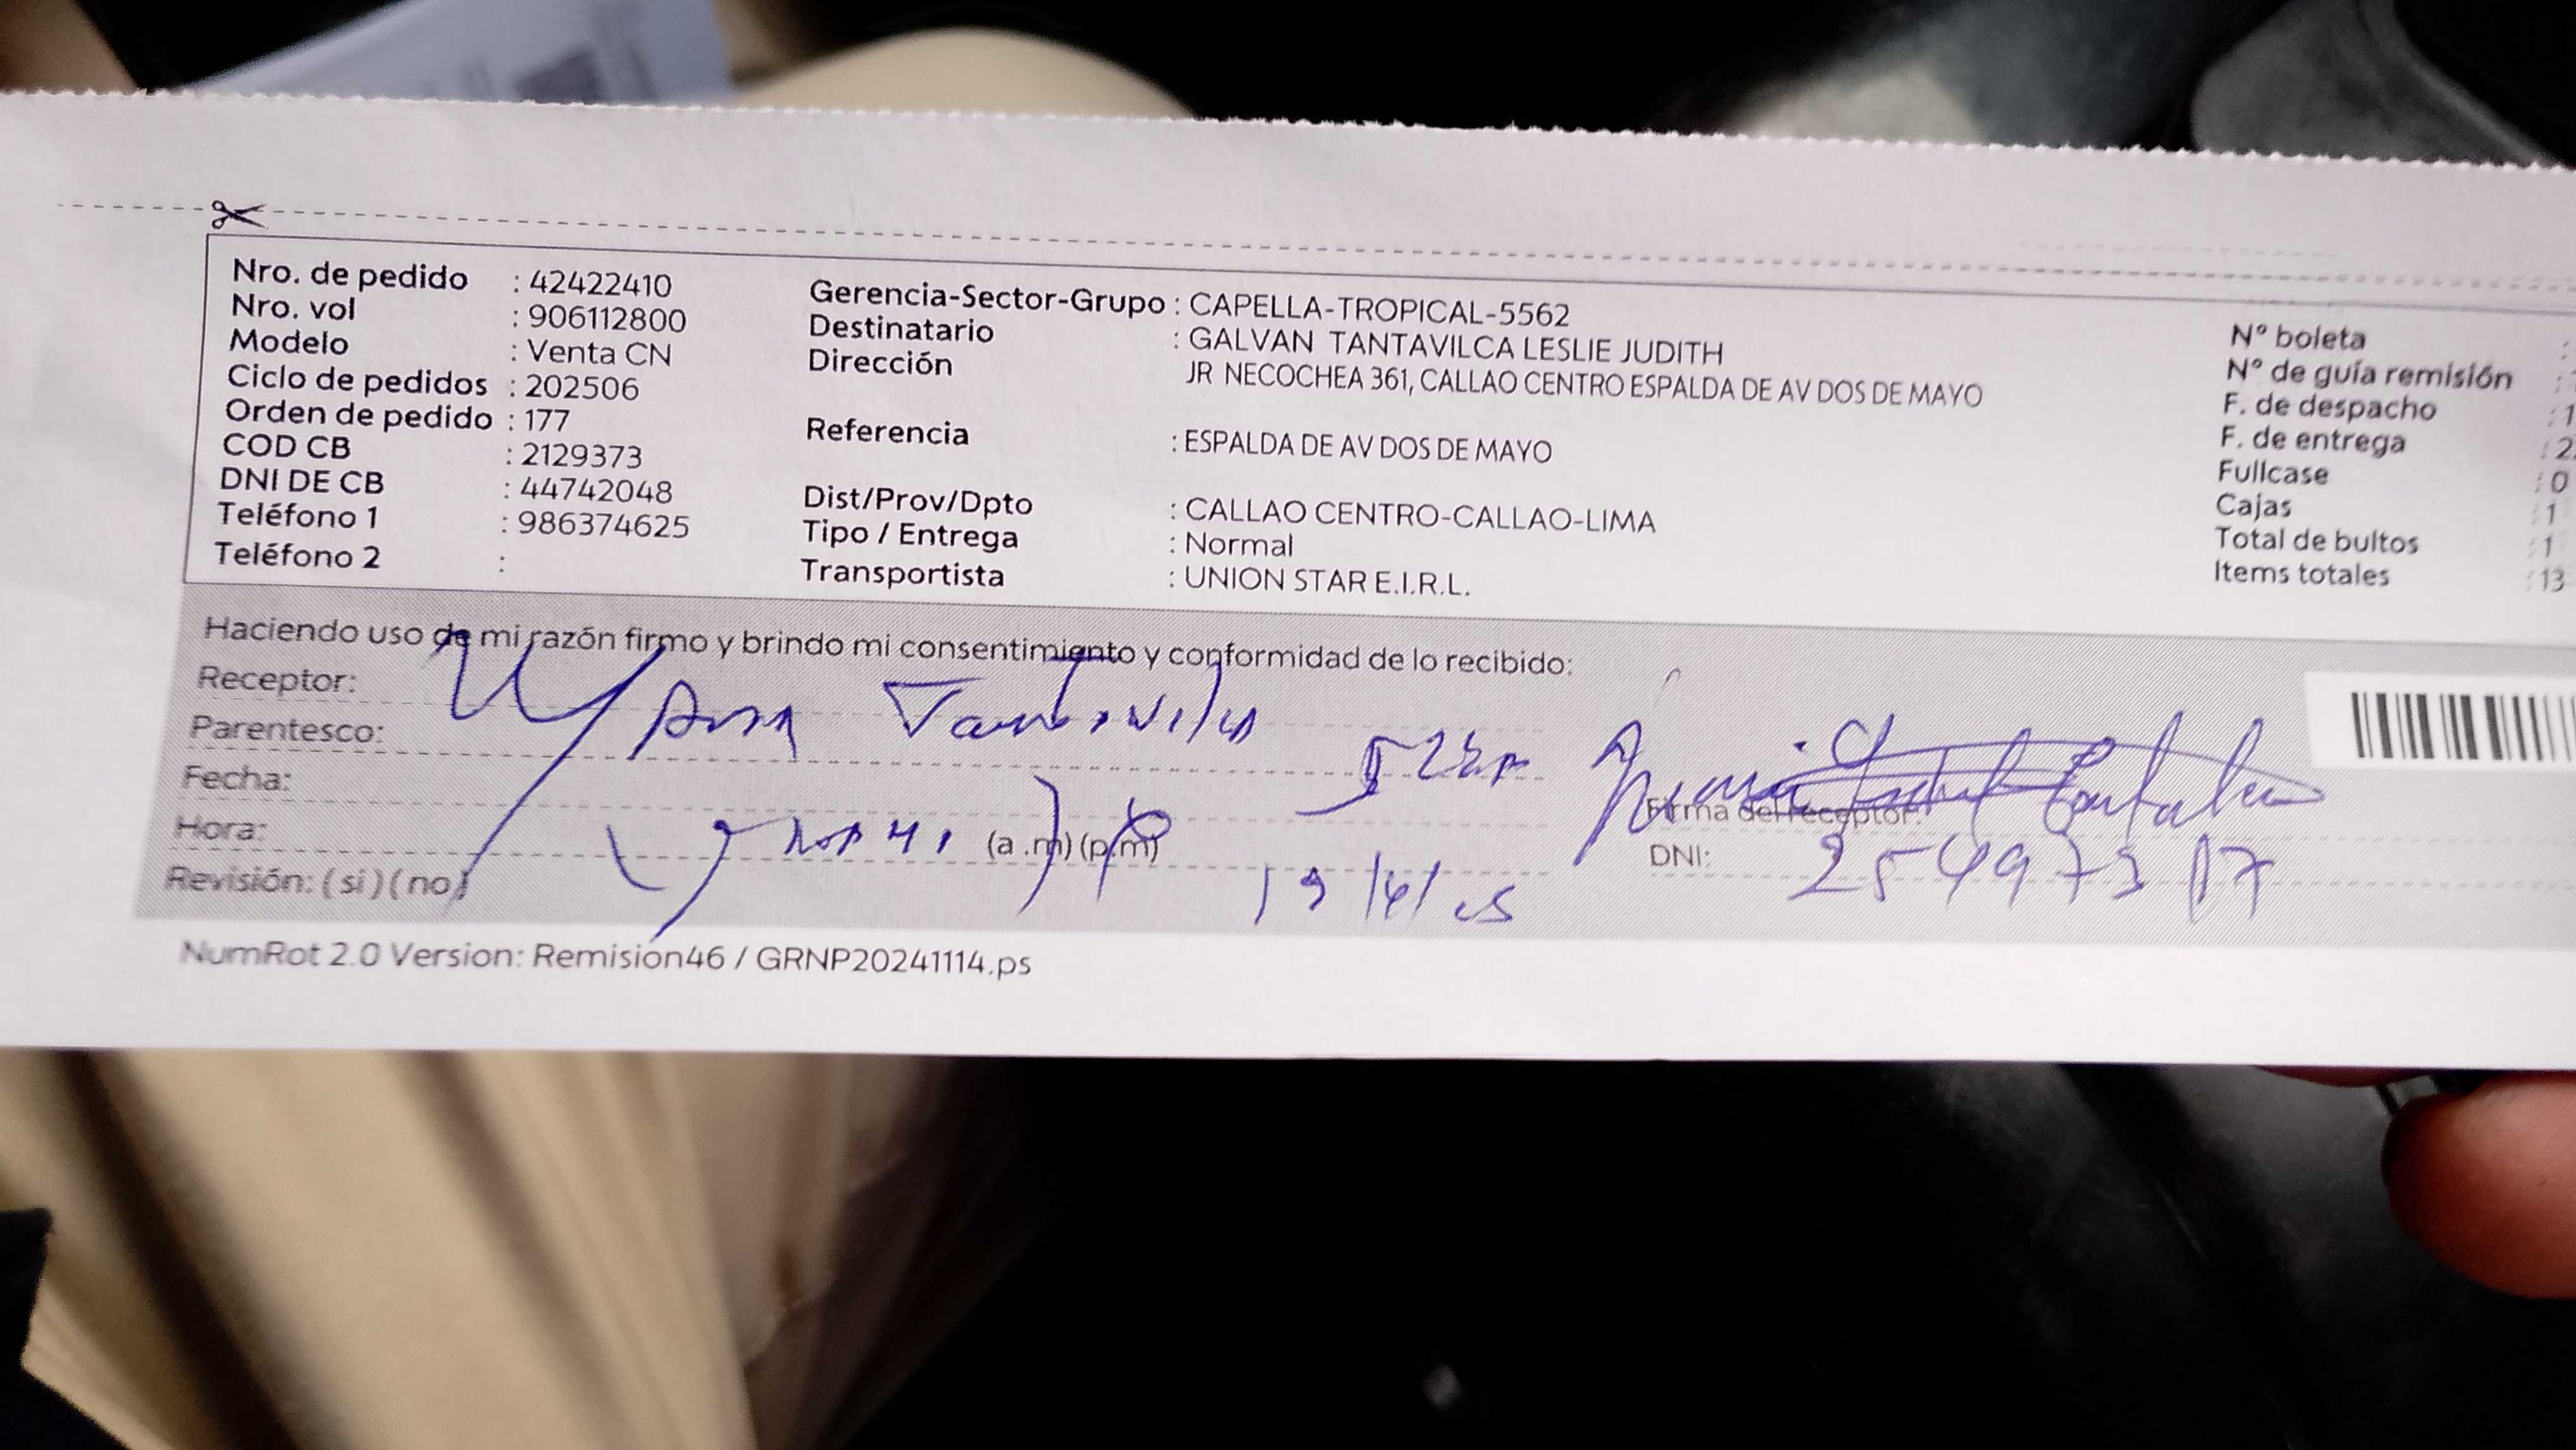 Nro. de pedido : 42422410
Nro. vol : 906112800
Modelo : Venta CN
Ciclo de pedidos : 202506
Orden de pedido : 177
COD CB : 2129373
DNI DE CB : 44742048
Teléfono 1 : 986374625
Teléfono 2 :
Gerencia-Sector-Grupo : CAPELLA-TROPICAL-5562
Destinatario : GALVAN TANTAVILCA LESLIE JUDITH
Dirección JR NECOCHEA 361, CALLAO CENTRO ESPALDA DE AV DOS DE MAYO
Referencia : ESPALDA DE AV DOS DE MAYO
Dist/Prov/Dpto : CALLAO CENTRO-CALLAO-LIMA
Tipo / Entrega : Normal
Transportista : UNION STAR E.I.R.L.
Nº boleta :
Nº de guía remisión :
F. de despacho : 1
F. de entrega : 2
Fullcase : 0
Cajas : 1
Total de bultos : 1
Items totales : 13
Haciendo uso de mi razón firmo y brindo mi consentimiento y conformidad de lo recibido:
Receptor:
Parentesco:
Fecha:
Hora: (a.m) (p.m)
Revisión: (si) (no)
19/4/25
Firma del receptor
DNI:
NumRot 2.0 Version: Remision46 / GRNP20241114.ps